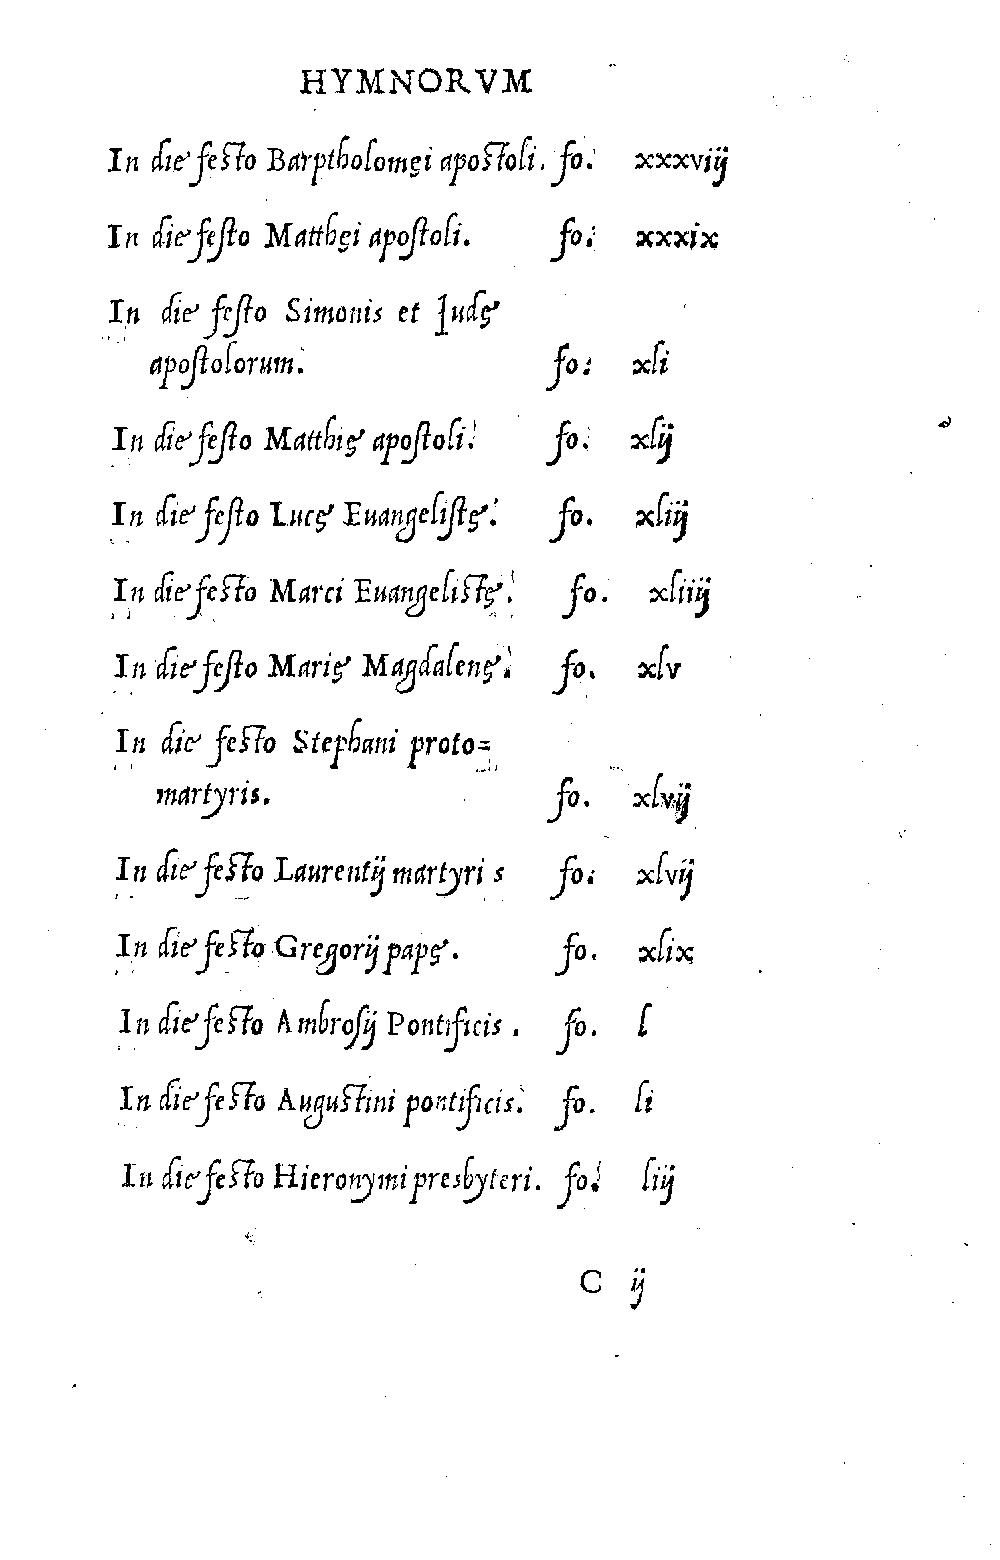 HYMNORVM
In die festo Barptholomęi apostoli. fo. xxxviij
In die festo Matthęi apostoli. fo. xxxix
In die festo Simonis et Iudę
apostolorum. fo: xli
In die festo Matthię apostoli. fo. xlij
In die festo Lucę Euangelistę. fo. xliij
In die festo Marci Euangelistę. fo. xliiij
In die festo Marię Magdalenę. fo. xlv
In die festo Stephani proto=
martyris. fo. xlvij
In die festo Laurentij martyri s fo: xlvij
In die festo Gregorij papę. fo. xlix
In die festo Ambrosij Pontificis. fo. l
In die festo Augustini pontificis. fo. li
In die festo Hieronymi presbyteri. fo. lij
C ij